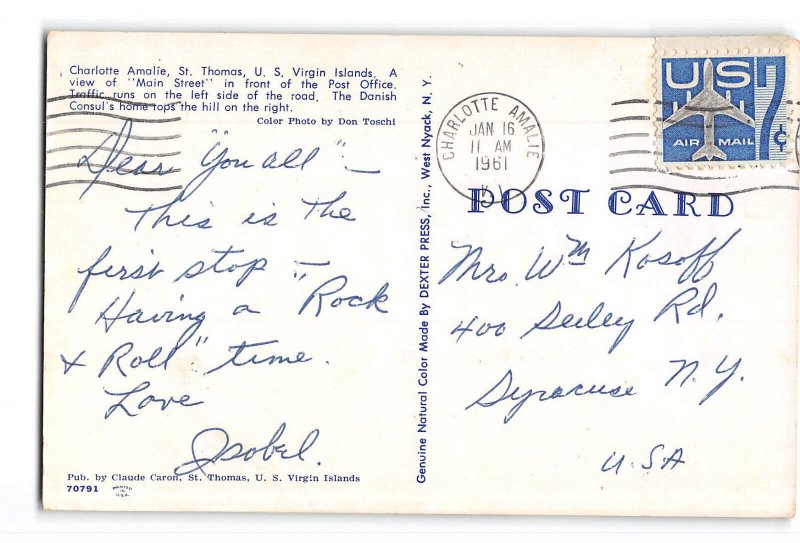 Charlotte Amalie, St. Thomas, U. S. Virgin Islands. A
view of "Main Street" in front of the Post Office.
Traffic runs on the left side of the road. The Danish
Consul's home tops the hill on the right.
Color Photo by Don Toschi
Dear "You all" -
This is the
first stop -
Having a "Rock
+ Roll" time.
Love
Isobel.
Pub. by Claude Caron, St. Thomas, U. S. Virgin Islands
70791
PRINTED
IN
U.S.A.
Genuine Natural Color Made By DEXTER PRESS, Inc., West Nyack, N. Y.
CHARLOTTE AMALIE
JAN 16
11 AM
1961
V.I.
US
7¢
AIR MAIL
POST CARD
Mrs. Wm Kosoff
400 Seeley Rd.
Syracuse N.Y.
U.S.A